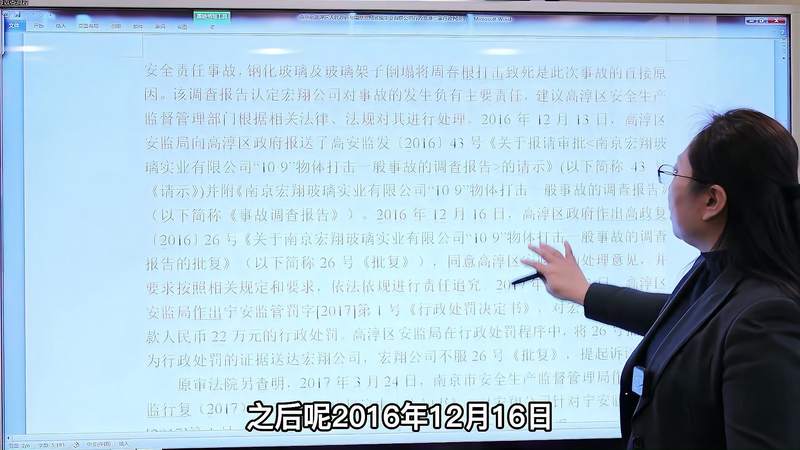 Microsoft Word
安全责任事故，钢化玻璃及玻璃架子倒塌将周春根打击致死是此次事故的直接原
因。该调查报告认定宏翔公司对事故的发生负有主要责任，建议高淳区安全生产
监督管理部门根据相关法律、法规对其进行处理。2016 年 12 月 13 日，高淳区
安监局向高淳区政府报送了高安监发〔2016〕43 号《关于报请审批<南京宏翔玻
璃实业有限公司“10 9”物体打击一般事故的调查报告>的请示》(以下简称 43 号
《请示》)并附《南京宏翔玻璃实业有限公司“10 9”物体打击一般事故的调查报告》
（以下简称《事故调查报告》）。2016 年 12 月 16 日，高淳区政府作出高政复
〔2016〕26 号《关于南京宏翔玻璃实业有限公司“10 9”物体打击一般事故的调查
报告的批复》（以下简称 26 号《批复》），同意高淳区安 的处理意见，并
要求按照相关规定和要求，依法依规进行责任追究 2017 年 高淳区
安监局作出宁安监管罚字[2017]第 1 号《行政处罚决定书》，对宏
款人民币 22 万元的行政处罚。高淳区安监局在行政处罚程序中，将 26 号
为行政处罚的证据送达宏翔公司，宏翔公司不服 26 号《批复》，提起诉
原审法院另查明，2017 年 3 月 24 日，南京市安全生产监督管理局
监行复（2017） 针对宁安
之后呢2016年12月16日